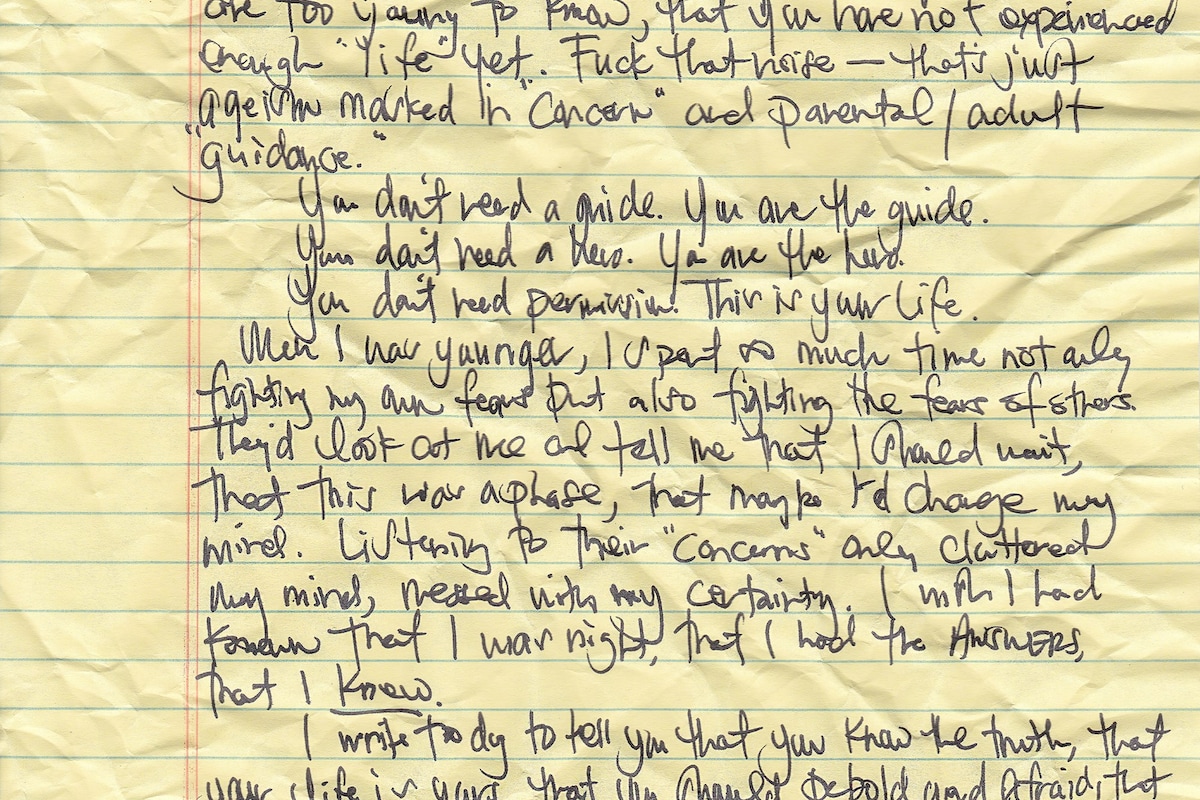 are too young to know, that you have not experienced
enough "life" yet. Fuck that noise — that's just
ageism masked in "concern" and parental/adult
"guidance."
You don't need a guide. You are the guide.
You don't need a hero. You are the hero.
You don't need permission. This is your life.
When I was younger, I spent so much time not only
fighting my own fears but also fighting the fears of others.
They'd look at me and tell me that I should wait,
that this was a phase, that maybe I'd change my
mind. Listening to their "concerns" only cluttered
my mind, messed with my certainty. I wish I had
known that I was right, that I had the ANSWERS,
that I know.
I write today to tell you that you know the truth, that
your life is yours, that you should be bold and afraid, that